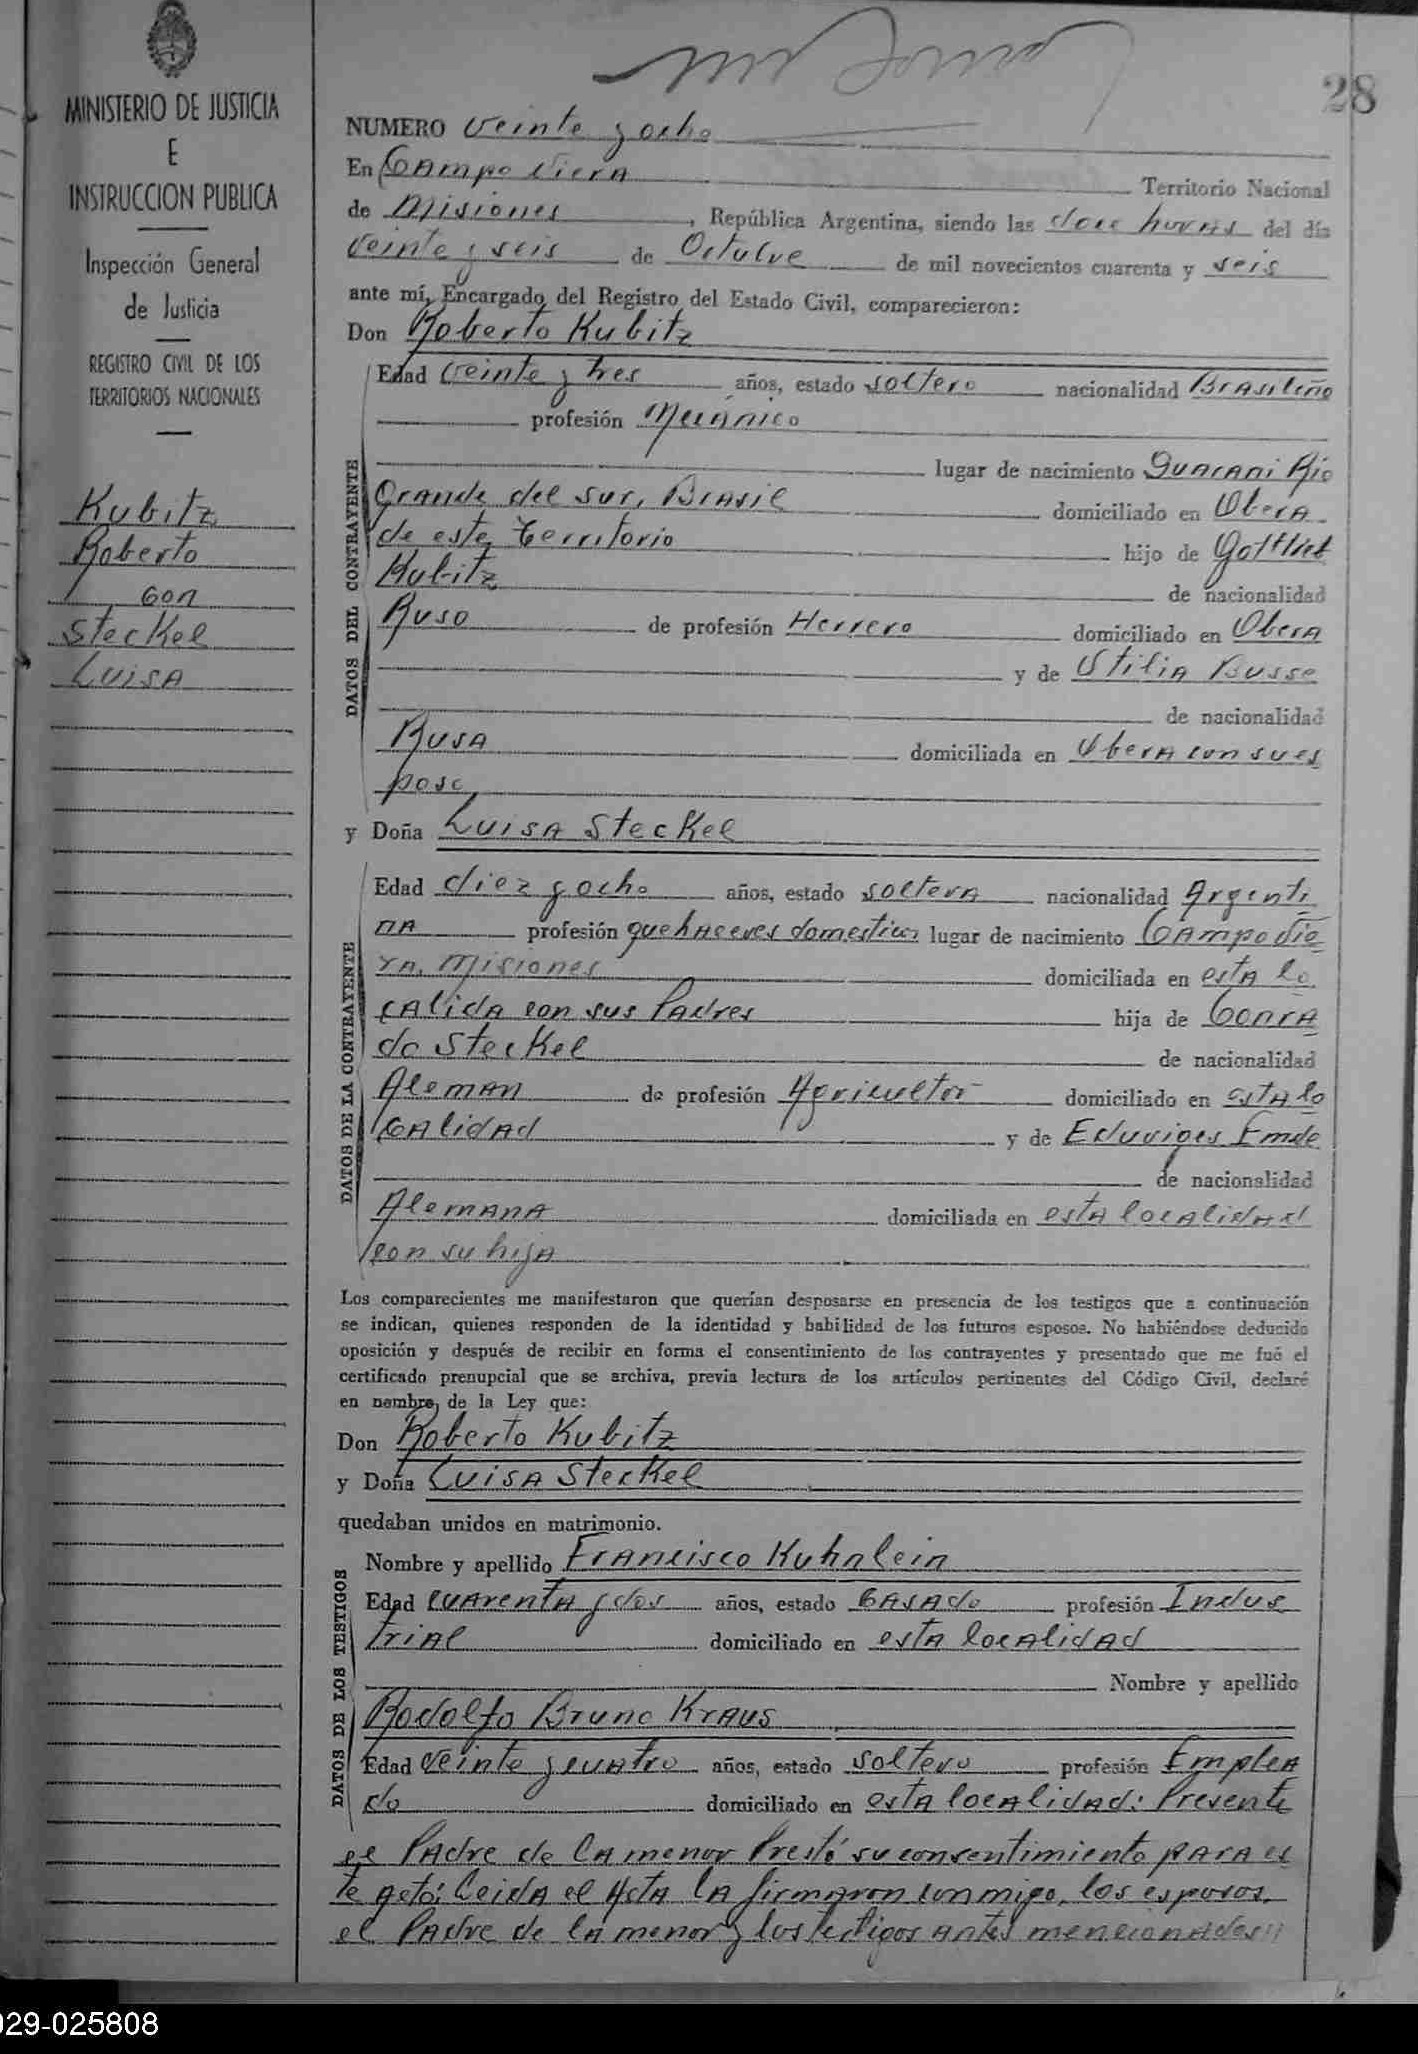 28
MINISTERIO DE JUSTICIA
E
INSTRUCCION PUBLICA
Inspección General
de Justicia
REGISTRO CIVIL DE LOS
TERRITORIOS NACIONALES
Kubitz
Roberto
con
Steckel
Luisa
NUMERO veinte y ocho
En Campo Viera Territorio Nacional
de Misiones, República Argentina, siendo las doce horas del día
veinte y seis de Octubre de mil novecientos cuarenta y seis
ante mí, Encargado del Registro del Estado Civil, comparecieron:
Don Roberto Kubitz
DATOS DEL CONTRAYENTE
Edad veinte y tres años, estado soltero nacionalidad Brasileño
profesión Mecánico
lugar de nacimiento Guarani Rio
Grande del sur, Brasil domiciliado en Obera
de este territorio hijo de Gottlieb
Kubitz de nacionalidad
Ruso de profesión Herrero domiciliado en Obera
y de Otilia Busse
de nacionalidad
Rusa domiciliada en Obera con su es
poso
y Doña Luisa Steckel
DATOS DE LA CONTRAYENTE
Edad diez y ocho años, estado soltera nacionalidad Argenti
na profesión quehaceres domesticos lugar de nacimiento Campo Vie
ra, Misiones domiciliada en esta lo
calida con sus Padres hija de Conra
do Steckel de nacionalidad
Aleman de profesión Agricultor domiciliado en esta lo
calidad y de Eduviges Emde
de nacionalidad
Alemana domiciliada en esta localidad
con su hija
Los comparecientes me manifestaron que querían desposarse en presencia de los testigos que a continuación
se indican, quienes responden de la identidad y habilidad de los futuros esposos. No habiéndose deducido
oposición y después de recibir en forma el consentimiento de los contrayentes y presentado que me fué el
certificado prenupcial que se archiva, previa lectura de los artículos pertinentes del Código Civil, declaré
en nombre de la Ley que:
Don Roberto Kubitz
y Doña Luisa Steckel
quedaban unidos en matrimonio.
DATOS DE LOS TESTIGOS
Nombre y apellido Francisco Kuhnlein
Edad cuarenta y dos años, estado casado profesión Indus
trial domiciliado en esta localidad
Nombre y apellido
Rodolfo Bruno Kraus
Edad veinte y cuatro años, estado soltero profesión Emplea
do domiciliado en esta localidad: Presente
el Padre de la menor Prestó su consentimiento para es
te acto: Leida el Acta la firmaron conmigo, los esposos,
el Padre de la menor y los testigos antes mencionados
029-025808